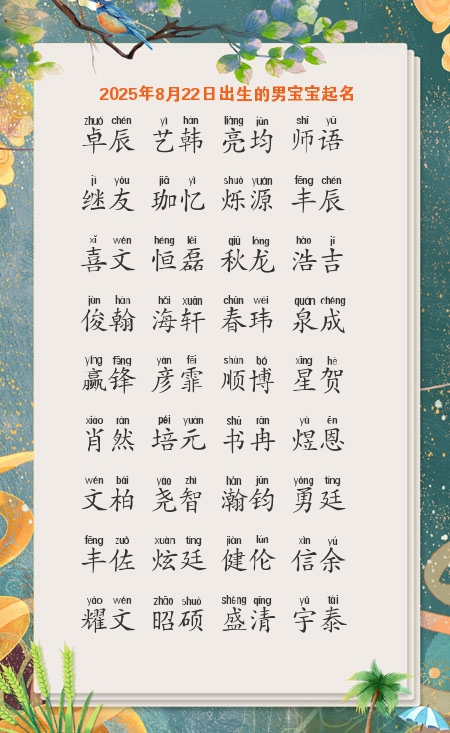 2025年8月22日出生的男宝宝起名
zhuó chén yì hán liàng jūn shī yǔ
卓辰 艺韩 亮均 师语
jì yǒu jiā yì shuò yuán fēng chén
继友 珈忆 烁源 丰辰
xǐ wén héng lěi qiū lóng hào jí
喜文 恒磊 秋龙 浩吉
jùn hàn hǎi xuān chūn wěi quán chéng
俊翰 海轩 春玮 泉成
yíng fēng yàn fēi shùn bó xīng hè
赢锋 彦霏 顺博 星贺
xiāo rán péi yuán shū rǎn yù ēn
肖然 培元 书冉 煜恩
wén bǎi yáo zhì hàn jūn yǒng tíng
文柏 尧智 瀚钧 勇廷
fēng zuǒ xuàn tíng jiàn lún xìn yú
丰佐 炫廷 健伦 信余
yào wén zhāo shuò shèng qīng yǔ tài
耀文 昭硕 盛清 宇泰